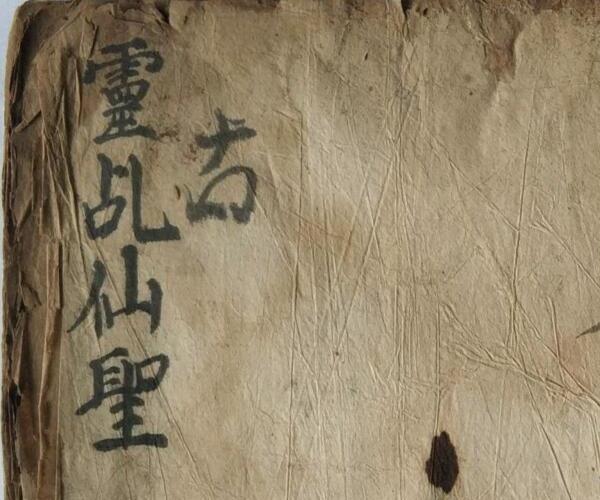 古
靈乩仙聖